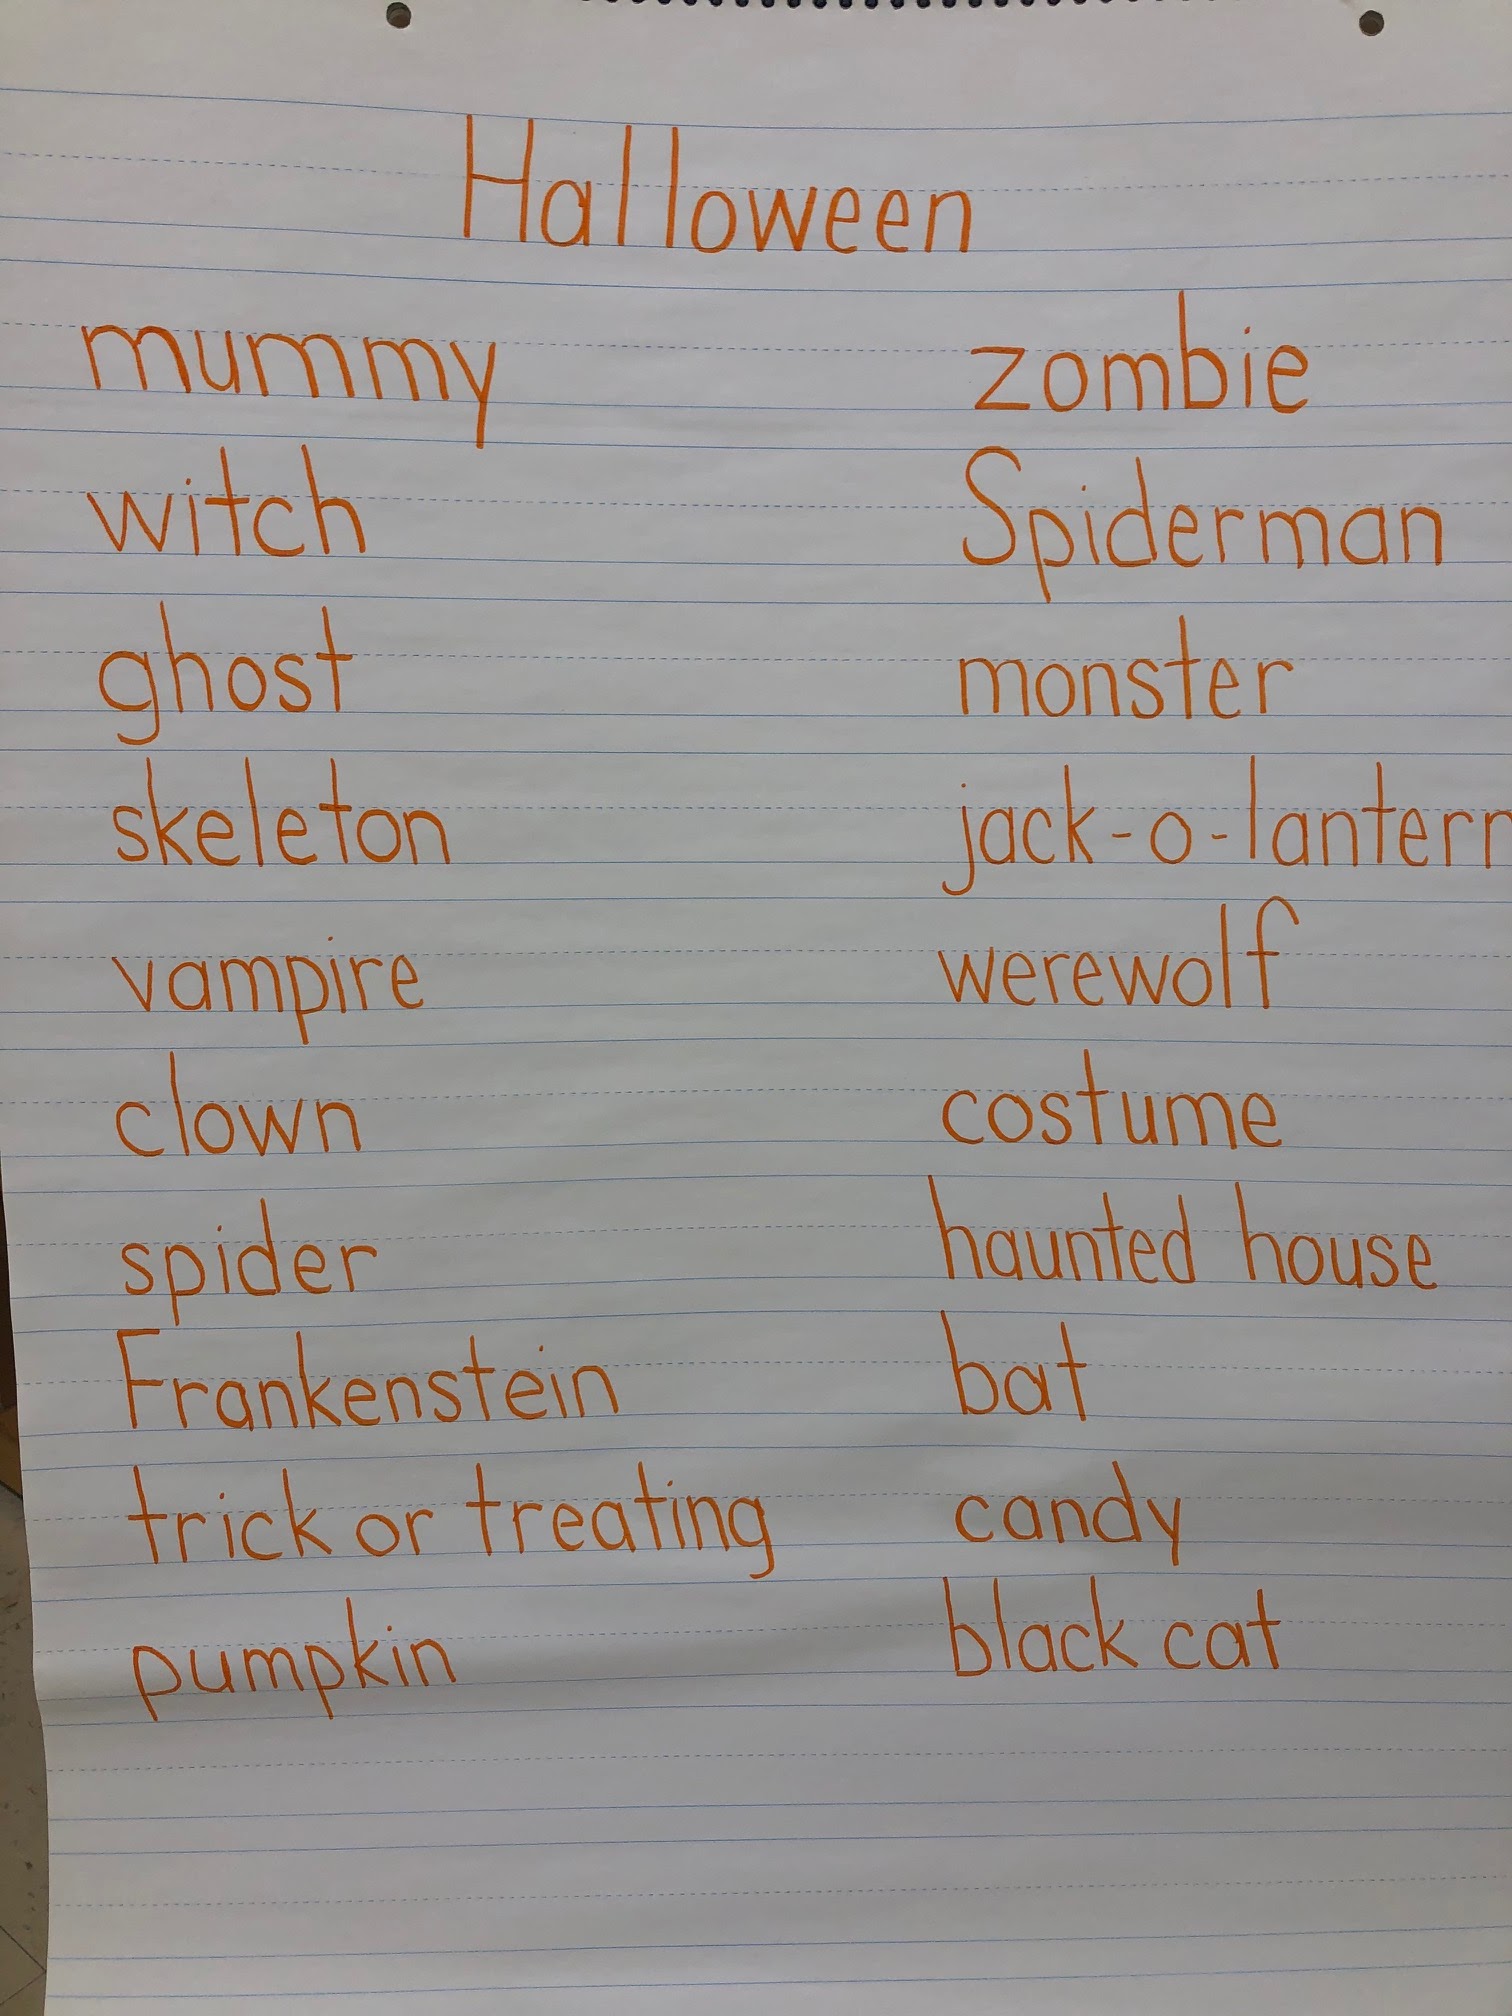 Halloween
mummy
witch
ghost
skeleton
vampire
clown
spider
Frankenstein
trick or treating
pumpkin
zombie
Spiderman
monster
jack-o-lantern
werewolf
costume
haunted house
bat
candy
black cat